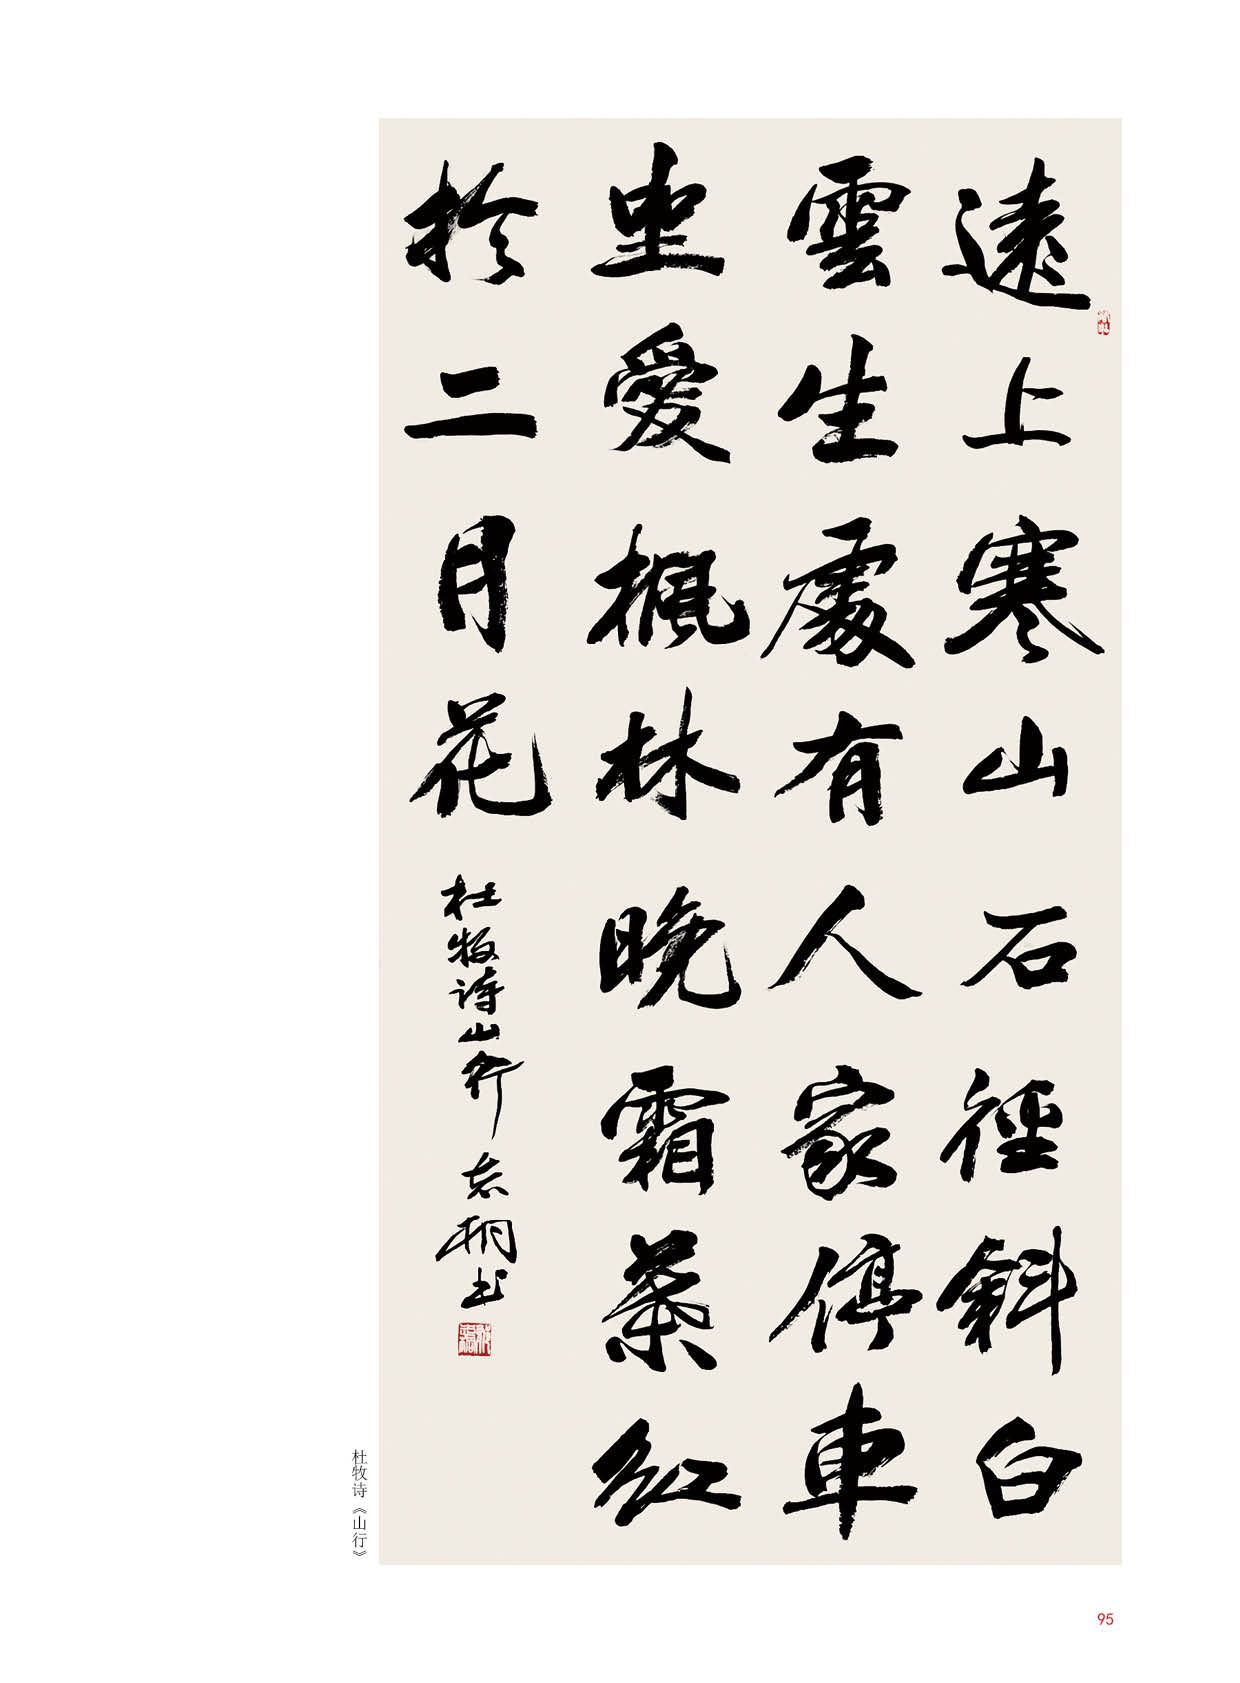 遠上寒山石徑斜白
雲生處有人家停車
坐愛楓林晚霜葉紅
於二月花
杜牧诗山行 志桐书
杜牧诗《山行》
95